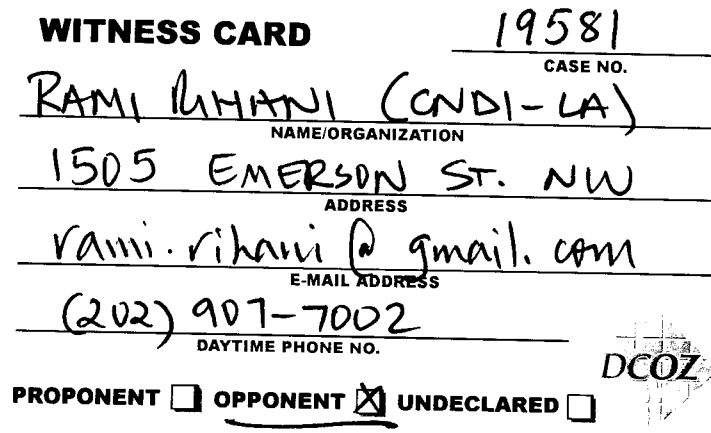 WITNESS CARD
19581
CASE NO.
RAMI RIHANI (CNDI-LA)
NAME/ORGANIZATION
1505 EMERSON ST. NW
ADDRESS
rami.rihani@gmail.com
E-MAIL ADDRESS
(202) 907-7002
DAYTIME PHONE NO.
DCOZ
PROPONENT ☐ OPPONENT ☒ UNDECLARED ☐